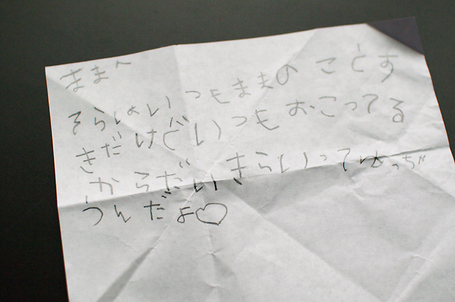 ままへ
そらはいつもままのことす
きだけどいつもおこってる
からだいきらいってゆっちゃ
うんだよ♡